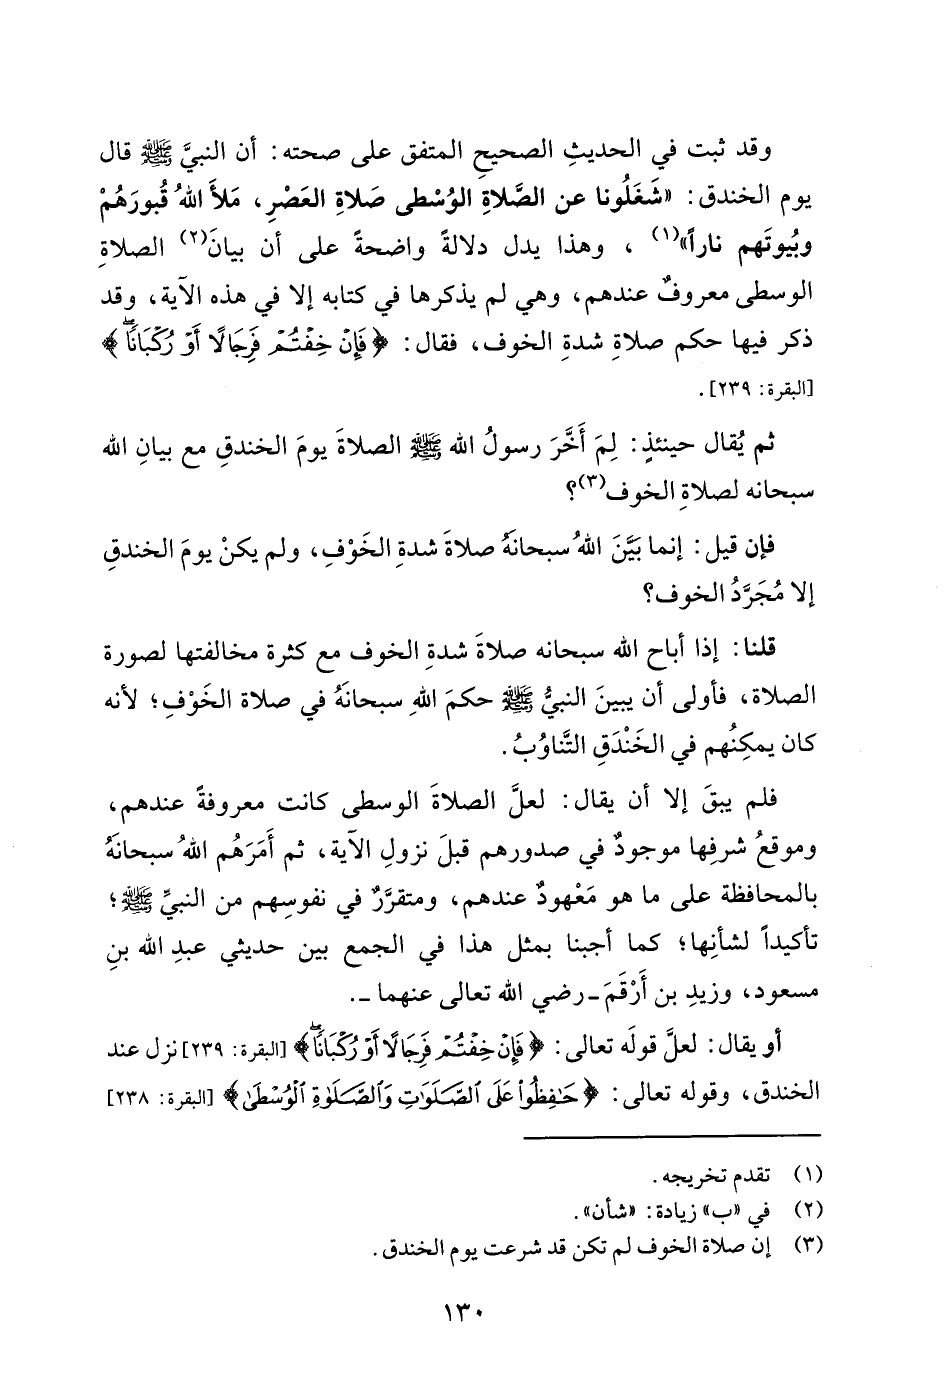 وقد ثبت في الحديثِ الصحيحِ المتفق على صحته: أن النبيَّ ﷺ قال
يوم الخندق: «شَغَلُونا عن الصَّلاةِ الوُسْطى صَلاةِ العَصْرِ، مَلأَ اللهُ قُبورَهُمْ
وبُيوتَهم ناراً»(١) ، وهذا يدل دلالةً واضحةً على أن بيانَ(٢) الصلاةِ
الوسطى معروفٌ عندهم، وهي لم يذكرها في كتابه إلا في هذه الآية، وقد
ذكر فيها حكم صلاةِ شدةِ الخوف، فقال: ﴿فَإِنْ خِفْتُمْ فَرِجَالًا أَوْ رُكْبَانًا﴾
[البقرة: ٢٣٩].
ثم يُقال حينئذٍ: لِمَ أَخَّرَ رسولُ الله ﷺ الصلاةَ يومَ الخندقِ مع بيانِ الله
سبحانه لصلاةِ الخوف(٣)؟
فإن قيل: إنما بَيَّنَ اللهُ سبحانَهُ صلاةَ شدةِ الخَوْفِ، ولم يكنْ يومَ الخندقِ
إلا مُجَرَّدُ الخوف؟
قلنا: إذا أباح الله سبحانه صلاةَ شدةِ الخوف مع كثرة مخالفتها لصورة
الصلاة، فأولى أن يبينَ النبيُّ ﷺ حكمَ اللهِ سبحانَهُ في صلاة الخَوْفِ؛ لأنه
كان يمكنُهم في الخَنْدَقِ التَّناوُبُ.
فلم يبقَ إلا أن يقال: لعلَّ الصلاةَ الوسطى كانت معروفةً عندهم،
وموقعُ شرفِها موجودٌ في صدورهم قبلَ نزولِ الآية، ثم أَمَرَهُم اللهُ سبحانَهُ
بالمحافظة على ما هو مَعْهودٌ عندهم، ومتقرَّرٌ في نفوسِهم من النبيِّ ﷺ؛
تأكيداً لشأنِها؛ كما أجبنا بمثل هذا في الجمع بين حديثي عبدِ الله بنِ
مسعود، وزيدِ بن أَرْقَمَ - رضي الله تعالى عنهما -.
أو يقال: لعلَّ قولَه تعالى: ﴿فَإِنْ خِفْتُمْ فَرِجَالًا أَوْ رُكْبَانًا﴾ [البقرة: ٢٣٩] نزل عند
الخندق، وقوله تعالى: ﴿حَافِظُوا عَلَى الصَّلَوَاتِ وَالصَّلَوٰةِ الْوُسْطَىٰ﴾ [البقرة: ٢٣٨]
(١) تقدم تخريجه.
(٢) في «ب» زيادة: «شأن».
(٣) إن صلاة الخوف لم تكن قد شرعت يوم الخندق.
١٣٠